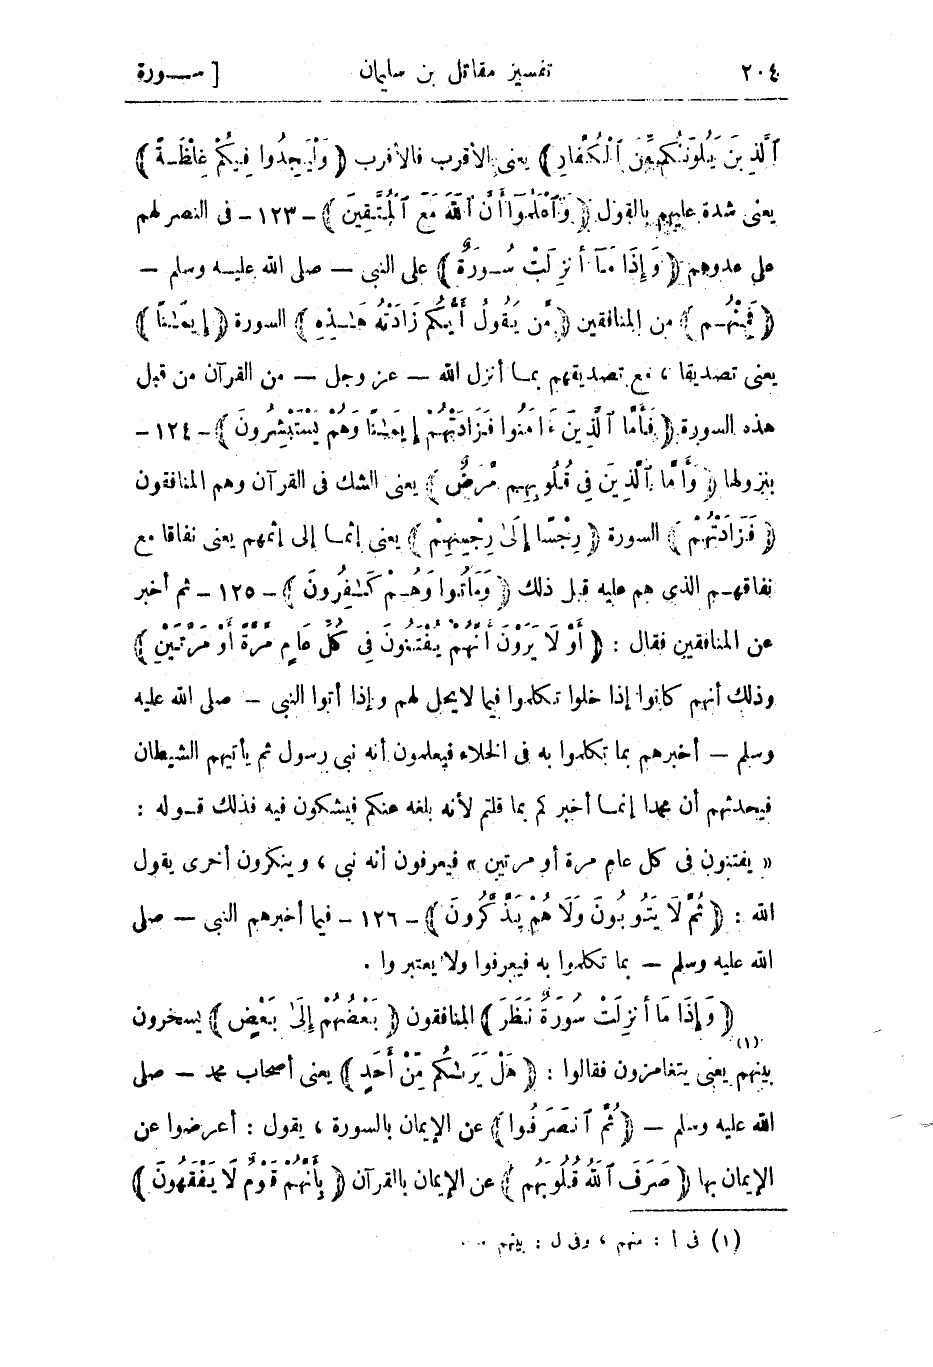 ٢٠٤ تفسير مقاتل بن سليمان [ سـورة
ٱلَّذِينَ يَلُونَكُم مِّنَ ٱلْكُفَّارِ ﴾ يعنى الأقرب فالأقرب ﴿ وَلْيَجِدُوا فِيكُمْ غِلْظَـةً ﴾
يعنى شدة عليهم بالقول ﴿ وَٱعْلَمُوٓا أَنَّ ٱللَّهَ مَعَ ٱلْمُتَّقِينَ ﴾ - ١٢٣ - فى النصر لهم
على عدوهم ﴿ وَإِذَا مَآ أُنزِلَتْ سُـورَةٌ ﴾ على النبى — صلى الله عليـه وسلم —
﴿ فَمِنْهُـم ﴾ من المنافقين ﴿ مَّن يَقُولُ أَيُّكُمْ زَادَتْهُ هَـٰـذِهِ ﴾ السورة ﴿ إِيمَـٰنًا ﴾
يعنى تصديقا ، مع تصديقهم بمـا أنزل الله — عز وجل — من القرآن من قبل
هذه السورة ﴿ فَأَمَّا ٱلَّذِينَ ءَامَنُوا فَزَادَتْهُمْ إِيمَـٰنًا وَهُمْ يَسْتَبْشِرُونَ ﴾ - ١٢٤ -
بنزولها ﴿ وَأَمَّا ٱلَّذِينَ فِى قُلُوبِهِم مَّرَضٌ ﴾ يعنى الشك فى القرآن وهم المنافقون
﴿ فَزَادَتْهُمْ ﴾ السورة ﴿ رِجْسًا إِلَىٰ رِجْسِهِمْ ﴾ يعنى إثمـا إلى إثمهم يعنى نفاقا مع
نفاقهـم الذى هم عليه قبل ذلك ﴿ وَمَاتُوا وَهُـمْ كَـٰفِرُونَ ﴾ - ١٢٥ - ثم أخبر
عن المنافقين فقال : ﴿ أَوَ لَا يَرَوْنَ أَنَّهُمْ يُفْتَنُونَ فِى كُلِّ عَامٍ مَّرَّةً أَوْ مَرَّتَيْنِ ﴾
وذلك أنهم كانوا إذا خلوا تكلموا فيما لا يحل لهم وإذا أتوا النبى — صلى الله عليه
وسلم — أخبرهم بما تكلموا به فى الخلاء فيعلمون أنه نبى رسول ثم يأتيهم الشيطان
فيحدثهم أن محمدا إنمـا أخبركم بما قلتم لأنه بلغه عنكم فيشكون فيه فذلك قـوله :
« يفتنون فى كل عام مرة أو مرتين » فيعرفون أنه نبى ، وينكرون أخرى يقول
الله : ﴿ ثُمَّ لَا يَتُوبُونَ وَلَا هُمْ يَذَّكَّرُونَ ﴾ - ١٢٦ - فيما أخبرهم النبى — صلى
الله عليه وسلم — بما تكلموا به فيعرفوا ولا يعتبروا .
﴿ وَإِذَا مَا أُنزِلَتْ سُورَةٌ نَظَرَ ﴾ المنافقون ﴿ بَعْضُهُمْ إِلَىٰ بَعْضٍ ﴾ يسخرون
بينهم (١) يعنى يتغامزون فقالوا : ﴿ هَلْ يَرَىٰكُم مِّنْ أَحَدٍ ﴾ يعنى أصحاب محمد — صلى
الله عليه وسلم — ﴿ ثُمَّ ٱنصَرَفُوا ﴾ عن الإيمان بالسورة ، يقول : أعرضوا عن
الإيمان بها ﴿ صَرَفَ ٱللَّهُ قُلُوبَهُم ﴾ عن الإيمان بالقرآن ﴿ بِأَنَّهُمْ قَوْمٌ لَّا يَفْقَهُونَ ﴾
(١) فى أ : منهم ، وفى ل : بينهم ...